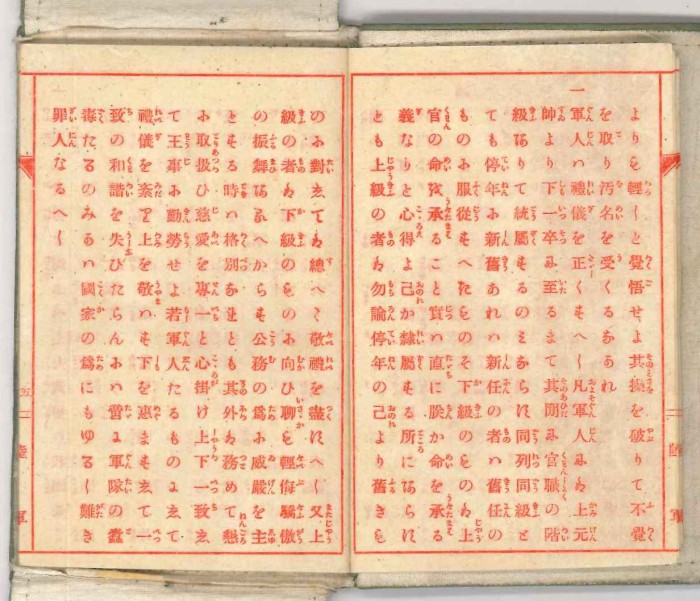 よりも輕しと覺悟せよ其操を破りて不覺
を取り汚名を受くるなかれ
一軍人は禮儀を正しくすへし凡軍人には上元
帥より下一卒に至るまて其間に官職の階
級ありて統屬するのみならす同列同級と
ても停年に新舊あれは新任の者は舊任の
ものに服從すへきものそ下級のものは上
官の命を承ること實は直に朕か命を承る
義なりと心得よ己か隷屬する所にあらす
とも上級の者は勿論停年の己より舊きも
のに對しては總へて敬禮を盡すへし又上
級の者は下級のものに向ひ聊も輕侮驕傲
の振舞あるへからす公務の爲に威嚴を主
とする時は格別なれとも其外は務めて懇
に取扱ひ慈愛を專一と心掛け上下一致し
て王事に勤勞せよ若軍人たるものにして
禮儀を紊り上を敬はす下を惠ますして一
致の和諧を失ひたらんには啻に軍隊の蠹
毒たるのみかは國家の爲にもゆるし難き
罪人なるへし
五
陸軍